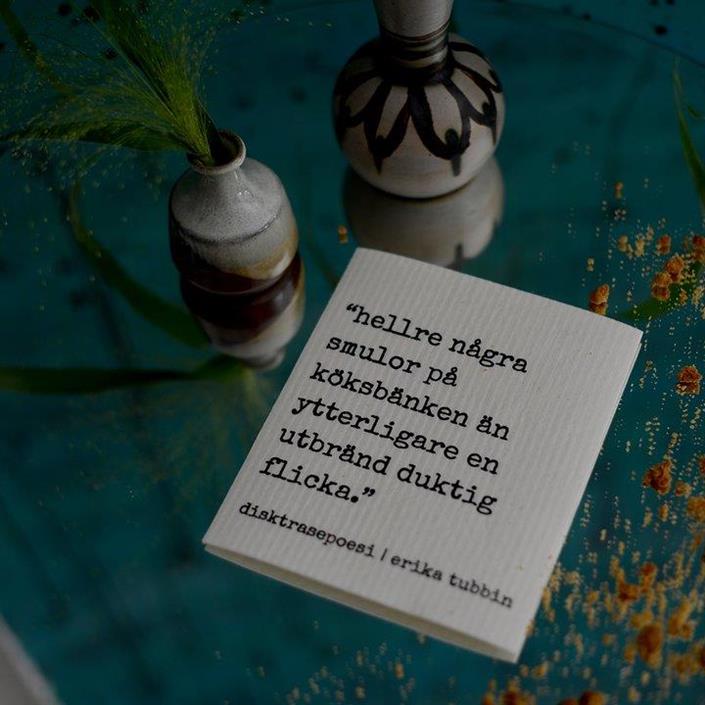 “hellre några
smulor på
köksbänken än
ytterligare en
utbränd duktig
flicka.”
disktrasepoesi | erika tubbin